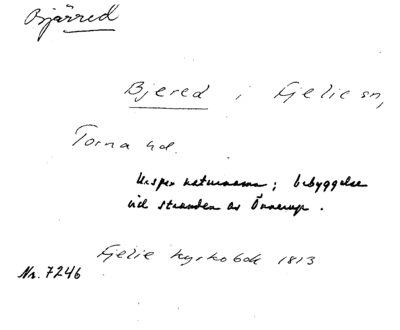 Bjärred
Bjered i Fjelie sn,
Torna hd.
Urspr. naturnamn; bebyggelse
vid stranden av Önnerup.
Fjelie kyrkobok 1813
Nr. 7246